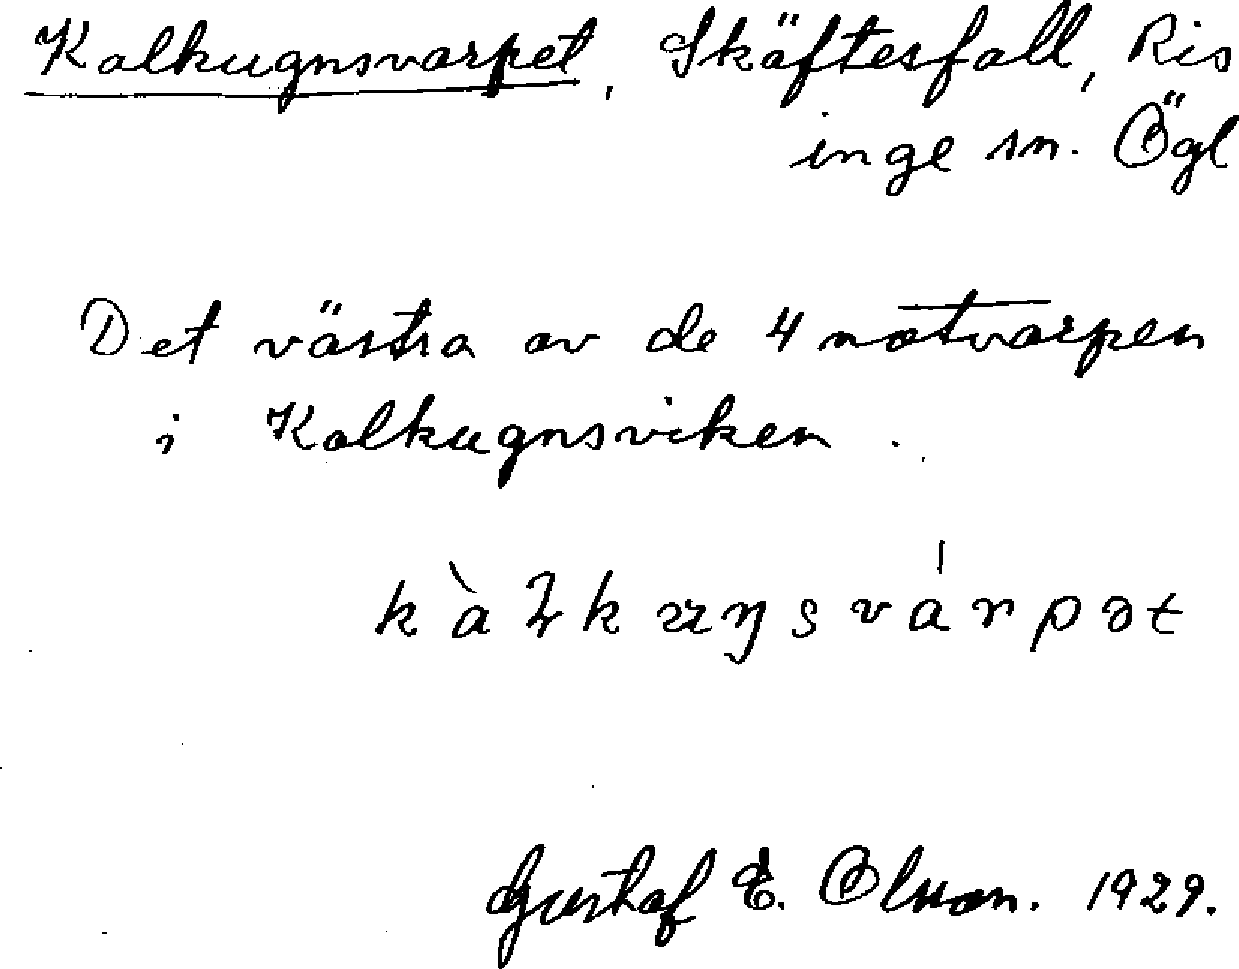 Kalkugnsvarpet, Skäfterfall, Ris
inge sn. Ögl
Det västra av de 4 notvarpen
i Kalkugnsviken.
Gustaf E. Olsson. 1929.